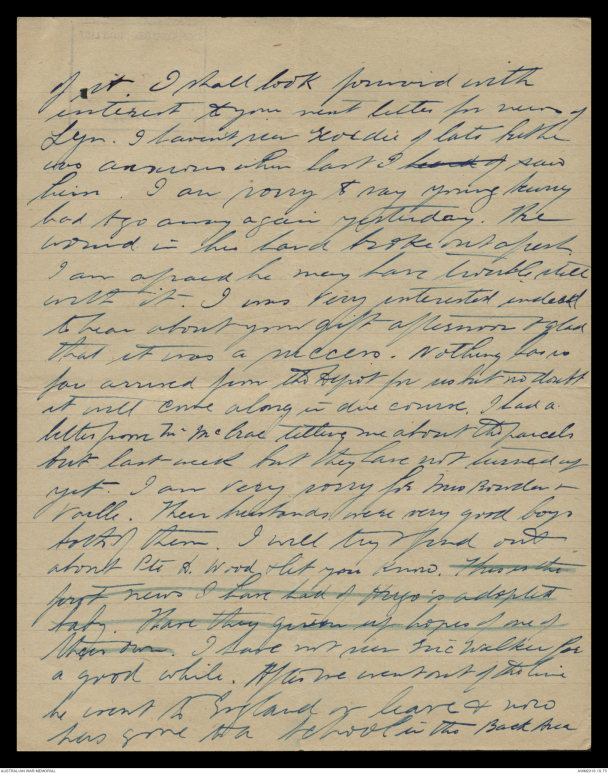 of it. I shall look forward with
interest to your next letter for news of
Lyn. I havent seen Goldie of late but he
was anxious when last I heard of saw
him. I am sorry to say young
had to go away again yesterday. The
wound in his hand broke out afresh
I am afraid he may have trouble still
with it. I was very interested indeed
to hear about your gift afternoon & glad
that it was a success. Nothing has so
far arrived from the Depot for us but no doubt
it will come along in due course. I had a
letter from Mr McCrae telling me about the parcels
but last week but they have not turned up
yet. I am very sorry for Mrs &
. Their husbands were very good boys
both of them. I will try & find out
about Pte H. Wood & let you know. This is the
first news I have had of Hugo's adopted
baby. Have they given up hopes of one of
their own. I have not seen Eric Walker for
a good while. After we went out of the line
he went to England on leave & now
has gone to a school in the Back Area
AUSTRALIAN WAR MEMORIAL